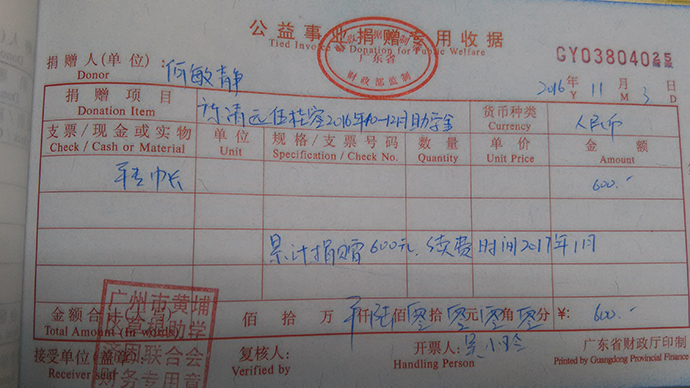 公益事业捐赠专用收据
Tied Invoice Donation for Public Welfare
广东省
财政部监制
GY03804025
捐赠人(单位): 何敏静
Donor
2016年 11月 3日
Y M D
捐赠项目 清远 2016年10-12月助学金 货币种类 人民币
Donation Item Currency
支票/现金或实物 单位 规格/支票号码 数量 单价 金额
Check / Cash or Material Unit Specification / Check No. Quantity Unit Price Amount
600.-
累计捐赠600元,续费时间2017年1月
金额合计(大写) 佰 拾 万 仟陆佰零拾零元零角零分 ¥: 600.-
Total Amount (in words)
接受单位(盖章): 复核人: 开票人: 吴小玲 广东省财政厅印制
Receiver Verified by Handling Person Printed by Guangdong Provincial Finance
广州市黄埔
助学
联合会
财务专用章